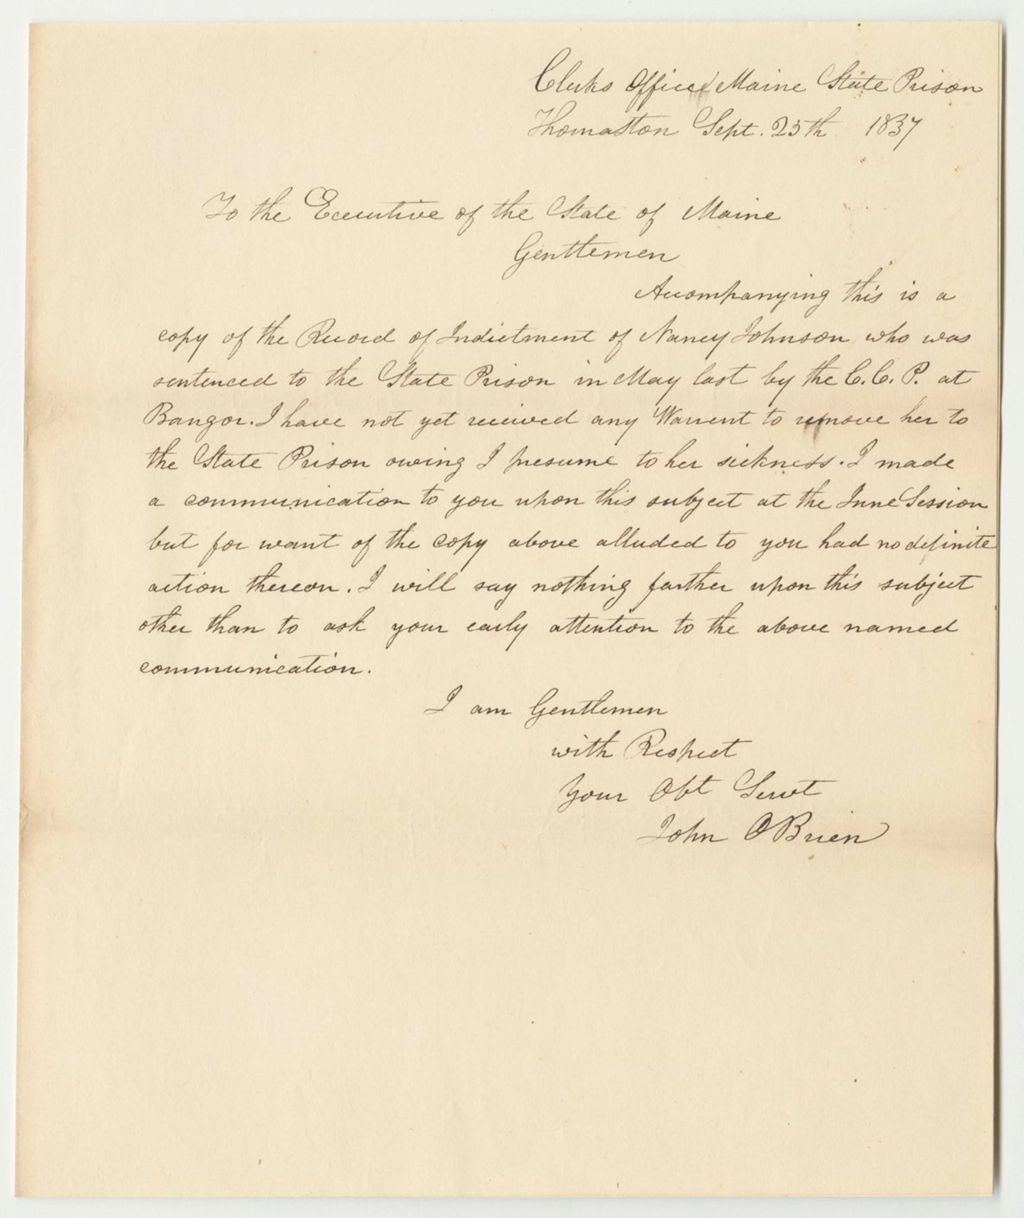 Clerks Office Maine State Prison
Thomaston Sept. 25th 1837
To the Executive of the State of Maine
Gentlemen
Accompanying this is a
copy of the Record of Indictment of Nancy Johnson who was
sentenced to the State Prison in May last by the C. C. P. at
Bangor. I have not yet received any Warrent to remove her to
the State Prison owing I presume to her sickness. I made
a communication to you upon this subject at the June Session
but for want of the copy above alluded to you had no definite
action thereon. I will say nothing farther upon this subject
other than to ask your early attention to the above named
communication.
I am Gentlemen
with Respect
Your Obt Servt
John OBrien